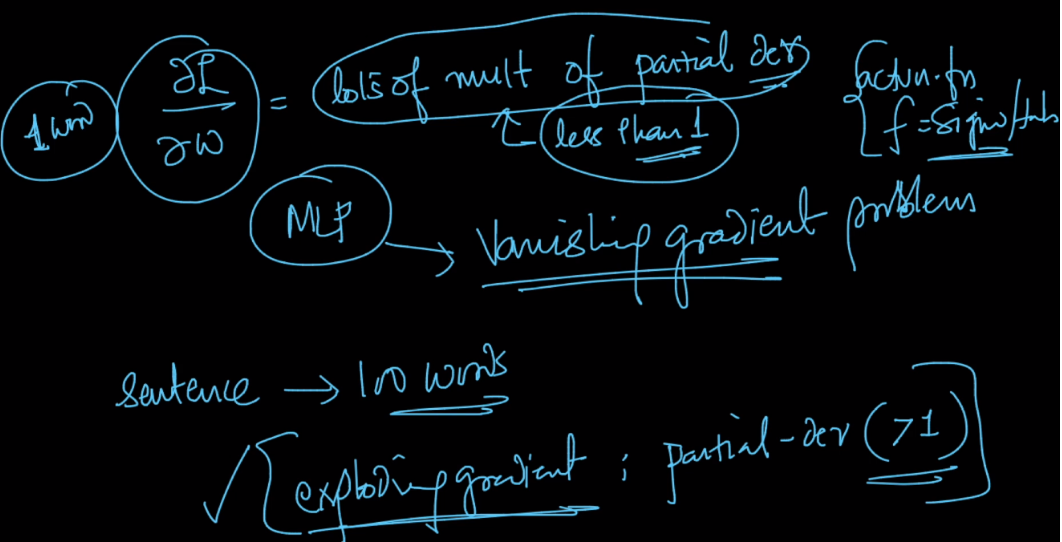 ∂L/∂W = lots of mult of partial der
less than 1
actvn. fn
f = sigmo/tanh
MLP → Vanishing gradient problem
sentence → 100 words
exploding gradient ; partial-der (>1)